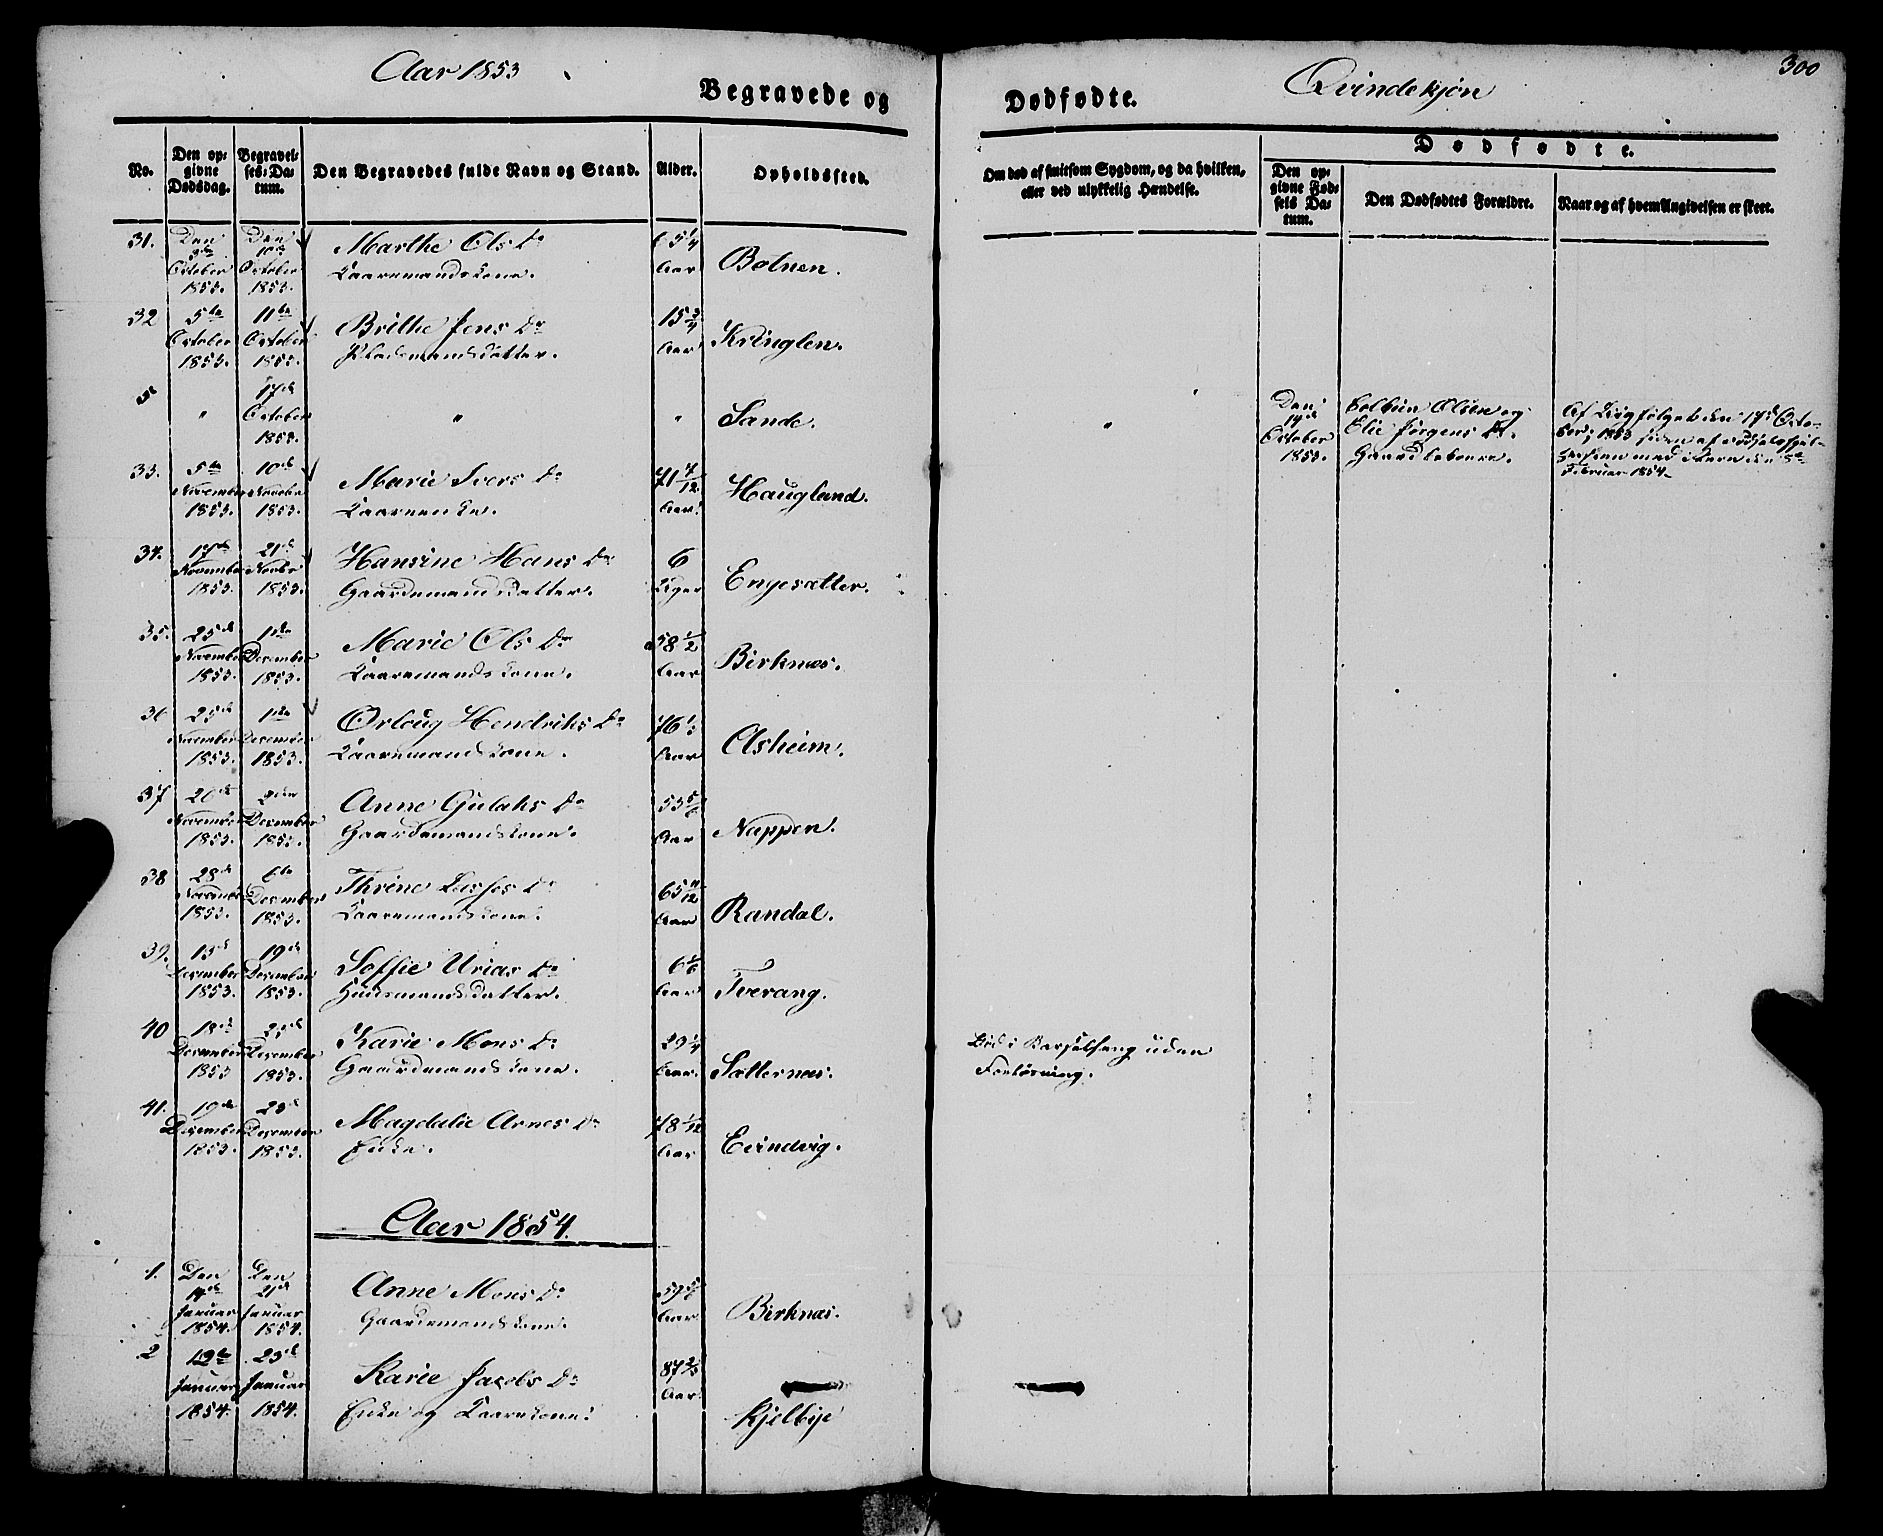 Aar 1853
Begravede og
Dødfødte.
Qvindekjøn
300
No.
Den op-
givne
Dødsdag.
Begravel-
ses-Da-
tum.
Den Begravedes fulde Navn og Stand.
Alder.
Opholdssted.
Om død af smitsom Sygdom, og da hvilken,
eller ved ulykkelig Hændelse.
Dødfødte.
Den op-
givne Fød-
sels Da-
tum.
Den Dødfødtes Forældre.
Naar og af hvem Angivelsen er skeet.
31.
Den
October
1853.
Den
10de
October
1853.
Marthe Ols Dr
Kaaremandskone.
65 1/4
Aar
Bolnen.
32
5te
October
1853.
11te
October
1853.
Brithe Jens Dr
Pladsmandsdatter.
15 3/4
Aar
Kringlen.
"
17de
October
1853.
"
"
Sande.
"
Den
14de
October
1853.
Olsen og
Elie Jørgens Dr.
Gaardbeboere.
Af Liigfølget den 17de Octo-
ber 1853 siden af
den 5te
Februar 1854
33.
5te
November
1853.
10de
Novebr
1853.
Marie Ivers Dr
71 7/12
Aar.
Haugland.
34.
17de
November
1853.
21de
Novbr
1853.
Hansine Hans Dr
Gaardemandsdatter.
6
Uger
Engesætter.
35.
25de
November
1853.
1ste
December
1853.
Marie Ols Dr
Kaaremandskone.
58 1/2
Aar
Birknæs.
36
25de
November
1853.
1ste
December
1853.
Ørloug Hendriks Dr
Kaaremandskone.
76 1/3
Aar
Asheim.
37
26de
November
1853.
2den
December
1853.
Anne Gulaks Dr
Gaardemandskone.
53 5/6
Aar
Nappen.
38
28de
November
1853.
6te
December
1853.
Thrine Lasses Dr
Kaaremandskone.
65 11/12
Aar
Randal.
39.
13de
December
1853.
19de
December
1853.
Soffie Urias Dr
Huusmandsdatter.
6 1/6
Aar
Tverang.
40
18de
December
1853
23de
December
1853.
Karie Mons Dr
Gaardmandskone.
29 1/4
Aar.
Sætternæs.
Død i Barselseng uden
Forløsning.
41.
19de
December
1853.
23de
December
1853.
Magdalie Arnes Dr
Enke.
78 1/12
Aar
Evindvig.
Aar 1854.
1.
Den
14de
Januar
1854.
Den
21de
Januar
1854.
Anne Mons Dr
Gaardemandskone.
59 5/6
Aar.
Birknæs.
2
12te
Januar
1854.
23de
Januar
1854.
Karie Jacobs Dr
Enke og Kaarekone.
87 2/3
Aar.
Kjelbye